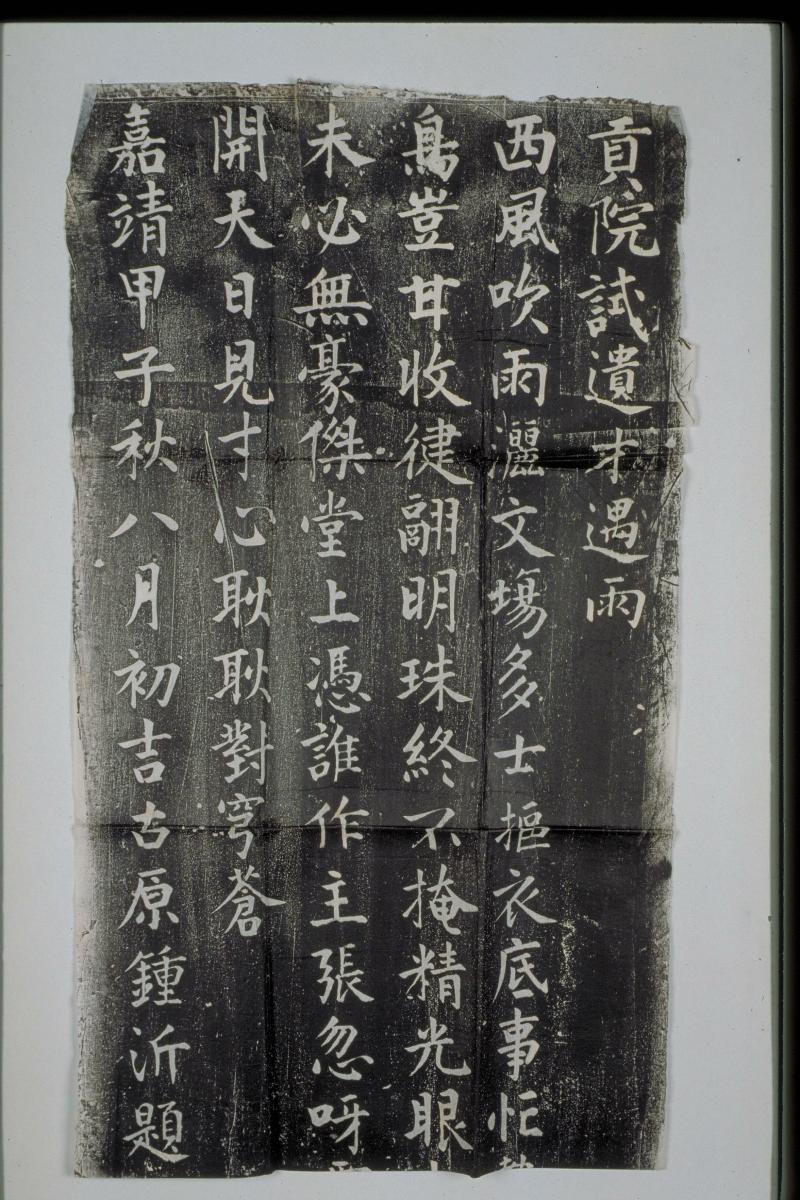 貢院試遺才遇雨
西風吹雨灑文塲多士摳衣底事忙
鳥豈甘收健翮明珠終不掩精光眼
未必無豪傑堂上憑誰作主張忽呀
開天日見寸心耿耿對穹蒼
嘉靖甲子秋八月初吉古原鍾沂題